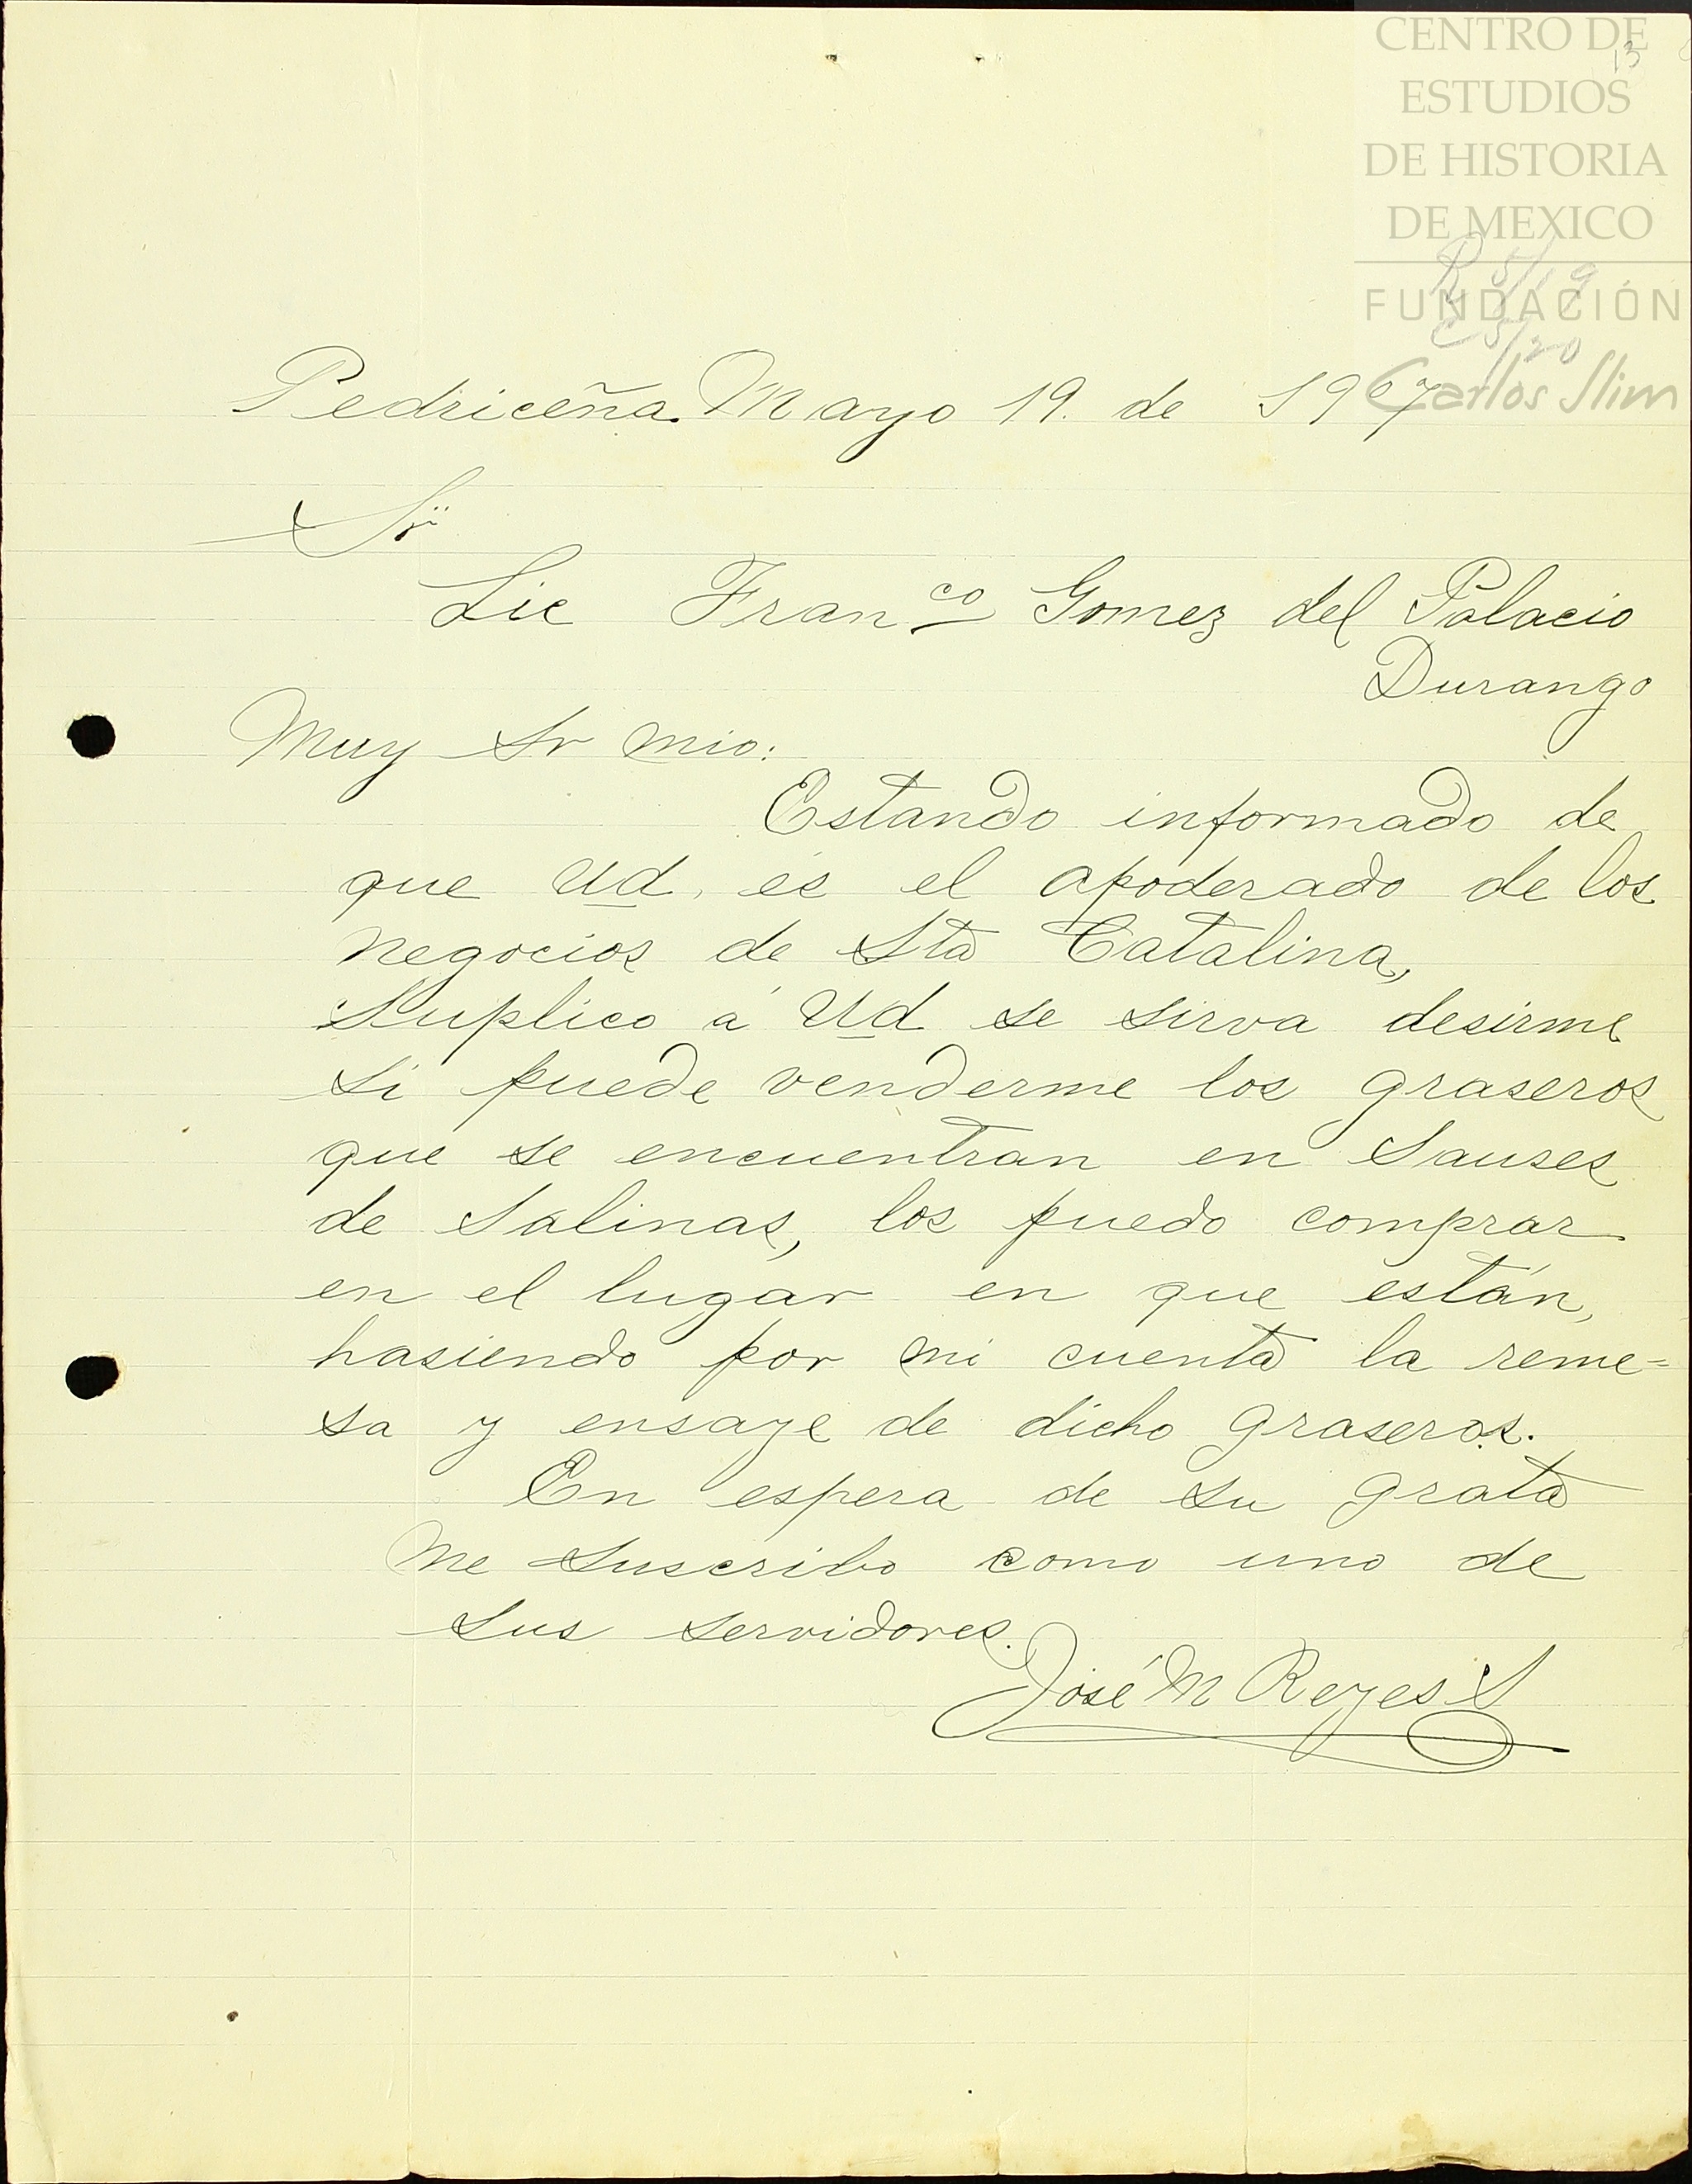 CENTRO DE
13
ESTUDIOS
DE HISTORIA
DE MEXICO
R 5/19
FUNDACIÓN
C 5/20
Carlos Slim
Pedriceña. Mayo 19. de 1907
Sr
Lic Franco Gomez del Palacio
Durango
Muy Sr mio:
Estando informado de
que Ud. es el apoderado de los
negocios de Sta Catalina,
Suplico á Ud se sirva desirme
si puede venderme los graseros
que se encuentran en Sauses
de Salinas, los puedo comprar
en el lugar en que están,
hasiendo por mi cuenta la reme=
sa y ensaye de dicho graseros.
En espera de su grata
me suscribo como uno de
sus servidores.
José M Reyes S